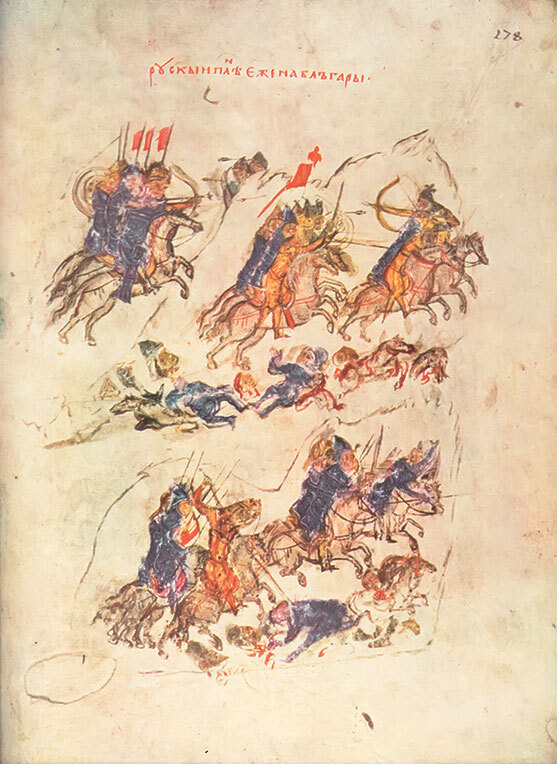 178
рꙋскыи плѣⷩ҇ еже на блъгары·